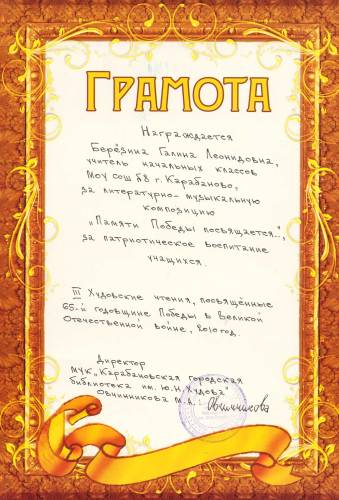 ГРАМОТА
Награждается
Берёзина Галина Леонидовна,
учитель начальных классов
МОУ СОШ №8 г. Карабаново,
за литературно-музыкальную
композицию
„Памяти Победы посвящается..",
за патриотическое воспитание
учащихся.
III Худовские чтения, посвящённые
65-й годовщине Победы в Великой
Отечественной войне, 2010 год.
Директор
МУК „Карабановская городская
библиотека им. Ю.Н.Худова"
Овчинникова М.А.: Овчинникова